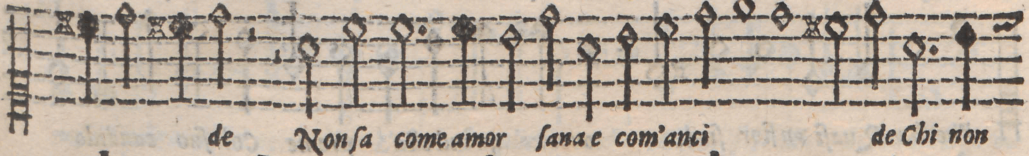 de Non ſa come amor ſana e com'anci de Chi non